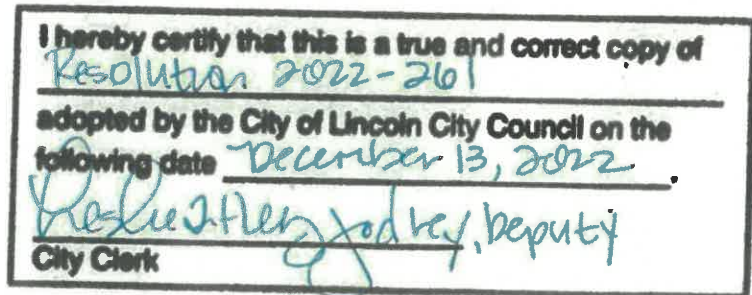 I hereby certify that this is a true and correct copy of
Resolution 2022-261
adopted by the City of Lincoln City Council on the
following date December 13, 2022.
Leslie, Deputy
City Clerk